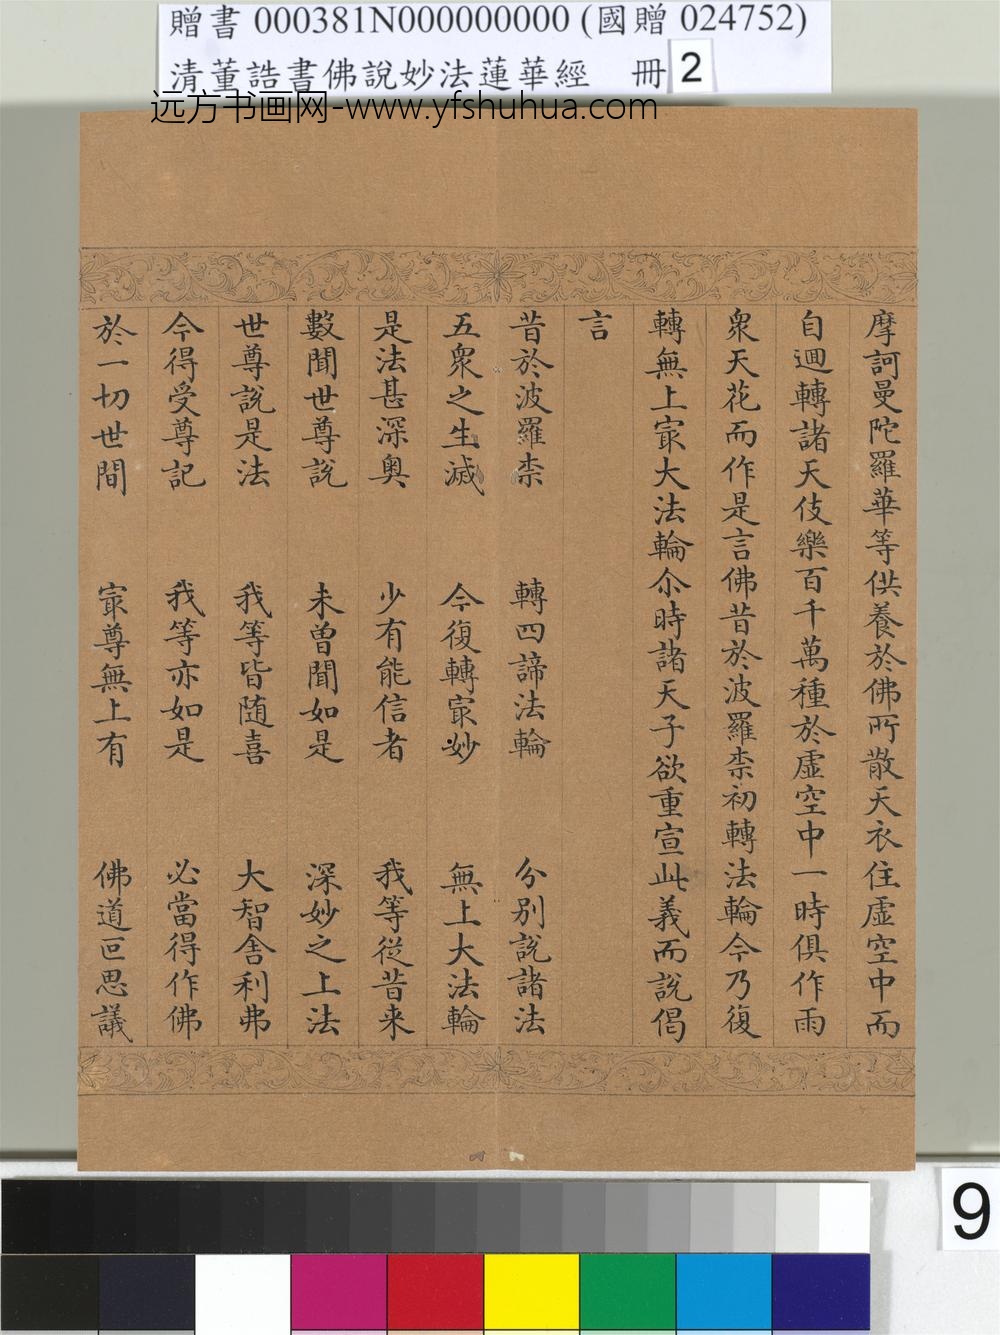 贈書 000381N000000000 (國贈 024752)
清董誥書佛說妙法蓮華經 冊 2
远方书画网-www.yfshuhua.com
摩訶曼陀羅華等供養於佛所散天衣住虛空中而
自迴轉諸天伎樂百千萬種於虛空中一時俱作雨
衆天花而作是言佛昔於波羅柰初轉法輪今乃復
轉無上㝡大法輪尒時諸天子欲重宣此義而說偈
言
昔於波羅柰 轉四諦法輪 分別說諸法
五衆之生滅 今復轉㝡妙 無上大法輪
是法甚深奥 少有能信者 我等從昔来
數聞世尊說 未曾聞如是 深妙之上法
世尊說是法 我等皆随喜 大智舍利弗
今得受尊記 我等亦如是 必當得作佛
於一切世間 㝡尊無上有 佛道叵思議
9